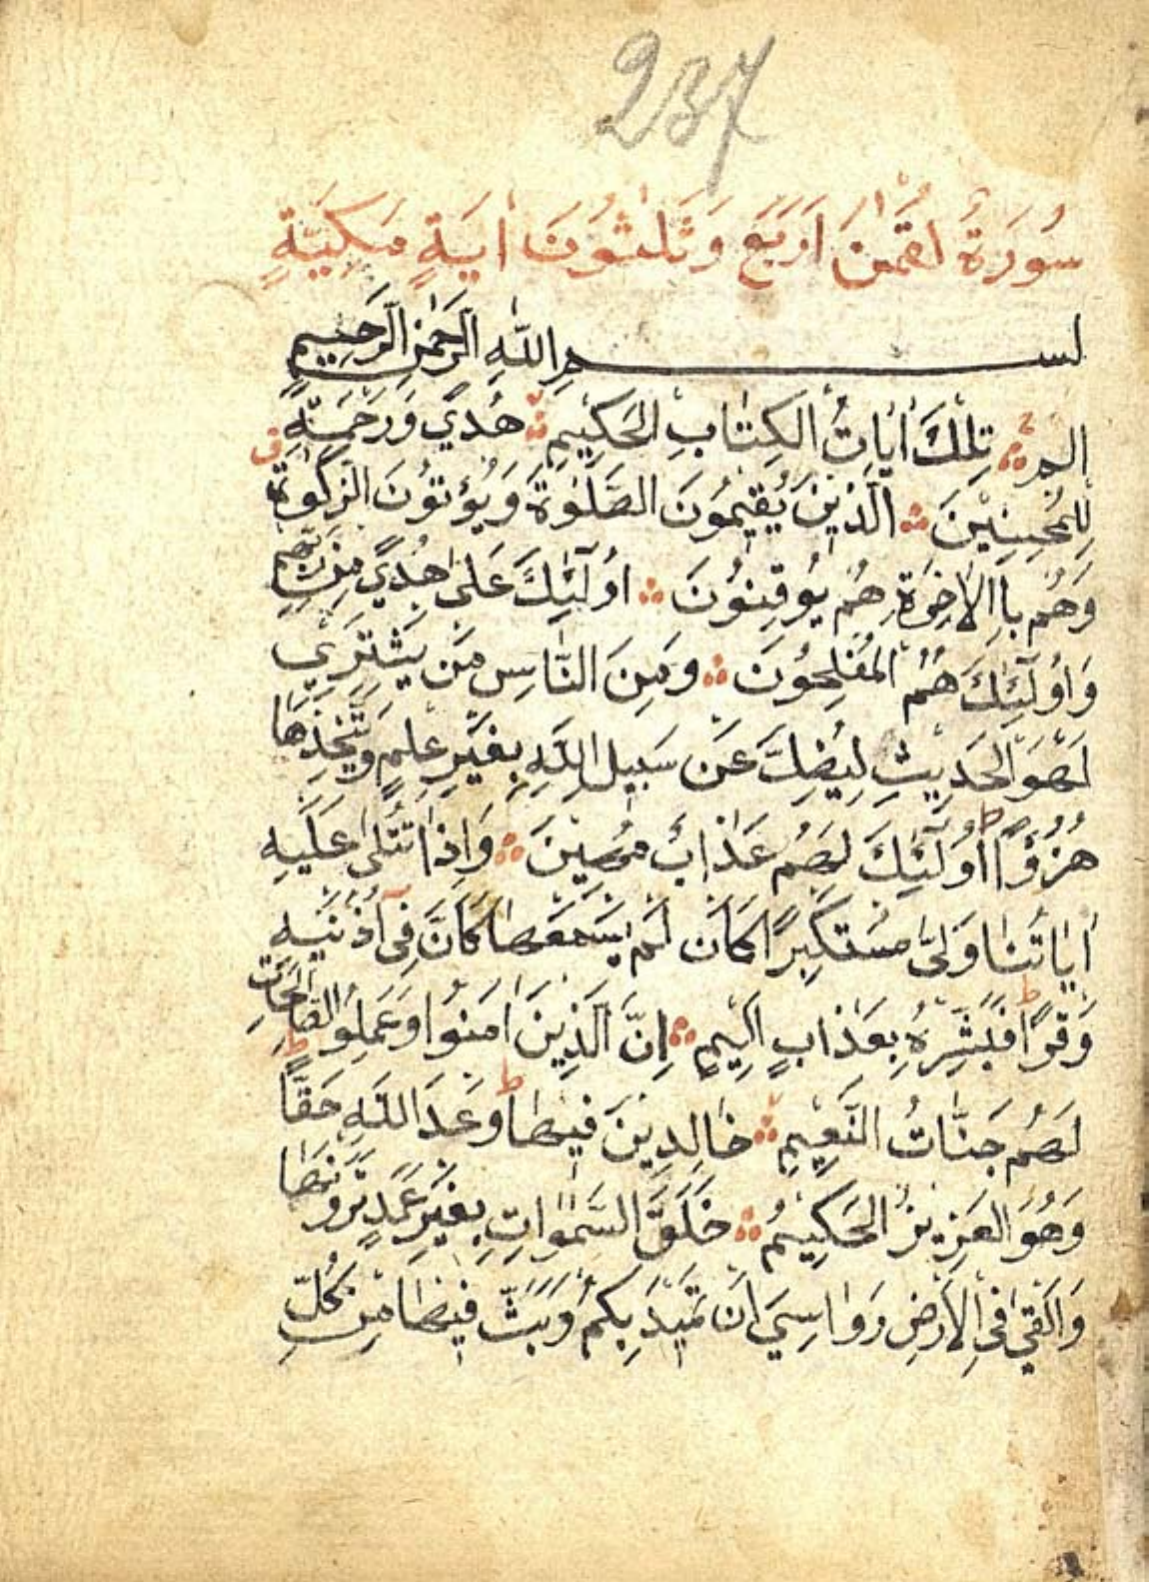 237
سُورَةُ لقمٰن اَرْبَع وَثَلٰثُونَ اٰيَةٍ مَكِيَّةٍ
بسم اللّٰهِ الرَّحْمٰنِ الرَّحِيمِ
الم تِلْكَ اٰيَاتُ الْكِتَابِ الْحَكِيمِ هُدًي وَرَحْمَةً ق
لِلْمُحْسِنِينَ الَّذِينَ يُقِيمُونَ الصَّلٰوةَ وَيُؤْتُونَ الزَّكٰوةَ
وَهُمْ بِاالْاٰخِرَةِ هُمْ يُوقِنُونَ اُولٰٓئِكَ عَلٰى هُدًي مِنْ رَبِّهِمْ
وَاُولٰٓئِكَ هُمُ الْمُفْلِحُونَ وَمِنَ النَّاسِ مَن يَشْتَرِي
لَهْوَ الْحَدِيثِ لِيُضِلَّ عَنْ سَبِيلِ اللّٰهِ بِغَيْرِ عِلْمٍ وَيَتَّخِذَهَا
هُزُؤًا ط اُولٰٓئِكَ لَهُمْ عَذَابٌ مُهِينَ وَاِذَا تُتْلٰى عَلَيْهِ
اٰيَاتُنَا وَلّٰى مُسْتَكْبِرًا كَاَن لَمْ يَسْمَعْهَا كَاَنَّ فِى اُذُنَيْهِ
وَقْرًا ط فَبَشِّرْهُ بِعَذَابٍ اَلِيمٍ اِنَّ الَّذِينَ اٰمَنُوا وَعَمِلُوا الصَّالِحَاتِ
لَهُمْ جَنَّاتُ النَّعِيمِ خَالِدِينَ فِيهَا ط وَعْدَ اللّٰهِ حَقًّا ط
وَهُوَ الْعَزِيزُ الْحَكِيمُ خَلَقَ السَّمٰوَاتِ بِغَيْرِ عَمَدٍ تَرَوْنَهَا
وَاَلْقٰى فِى الْاَرْضِ رَوَاسِيَ اَنْ تَمِيدَ بِكُمْ وَبَثَّ فِيهَا مِنْ كُلِّ